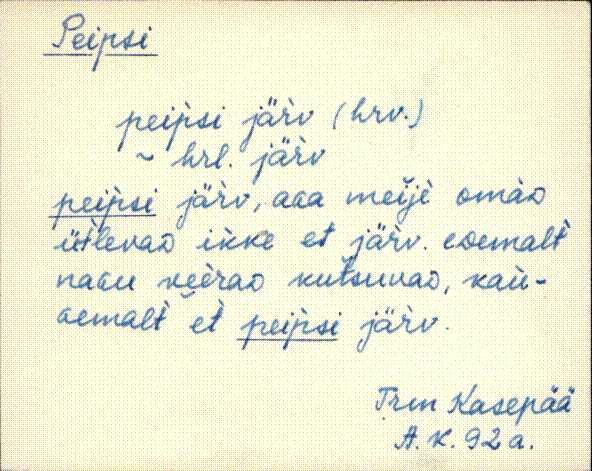 Peipsi
peipsi järv (hrv.)
~ hrl. järv
peipsi järv, aaa meiji omad
ütlevad ikke et järv. edemalt
nagu veerad kutsuvad, kau-
gemalt et peipsi järv.
Trm Kasepää
A.K. 92 a.